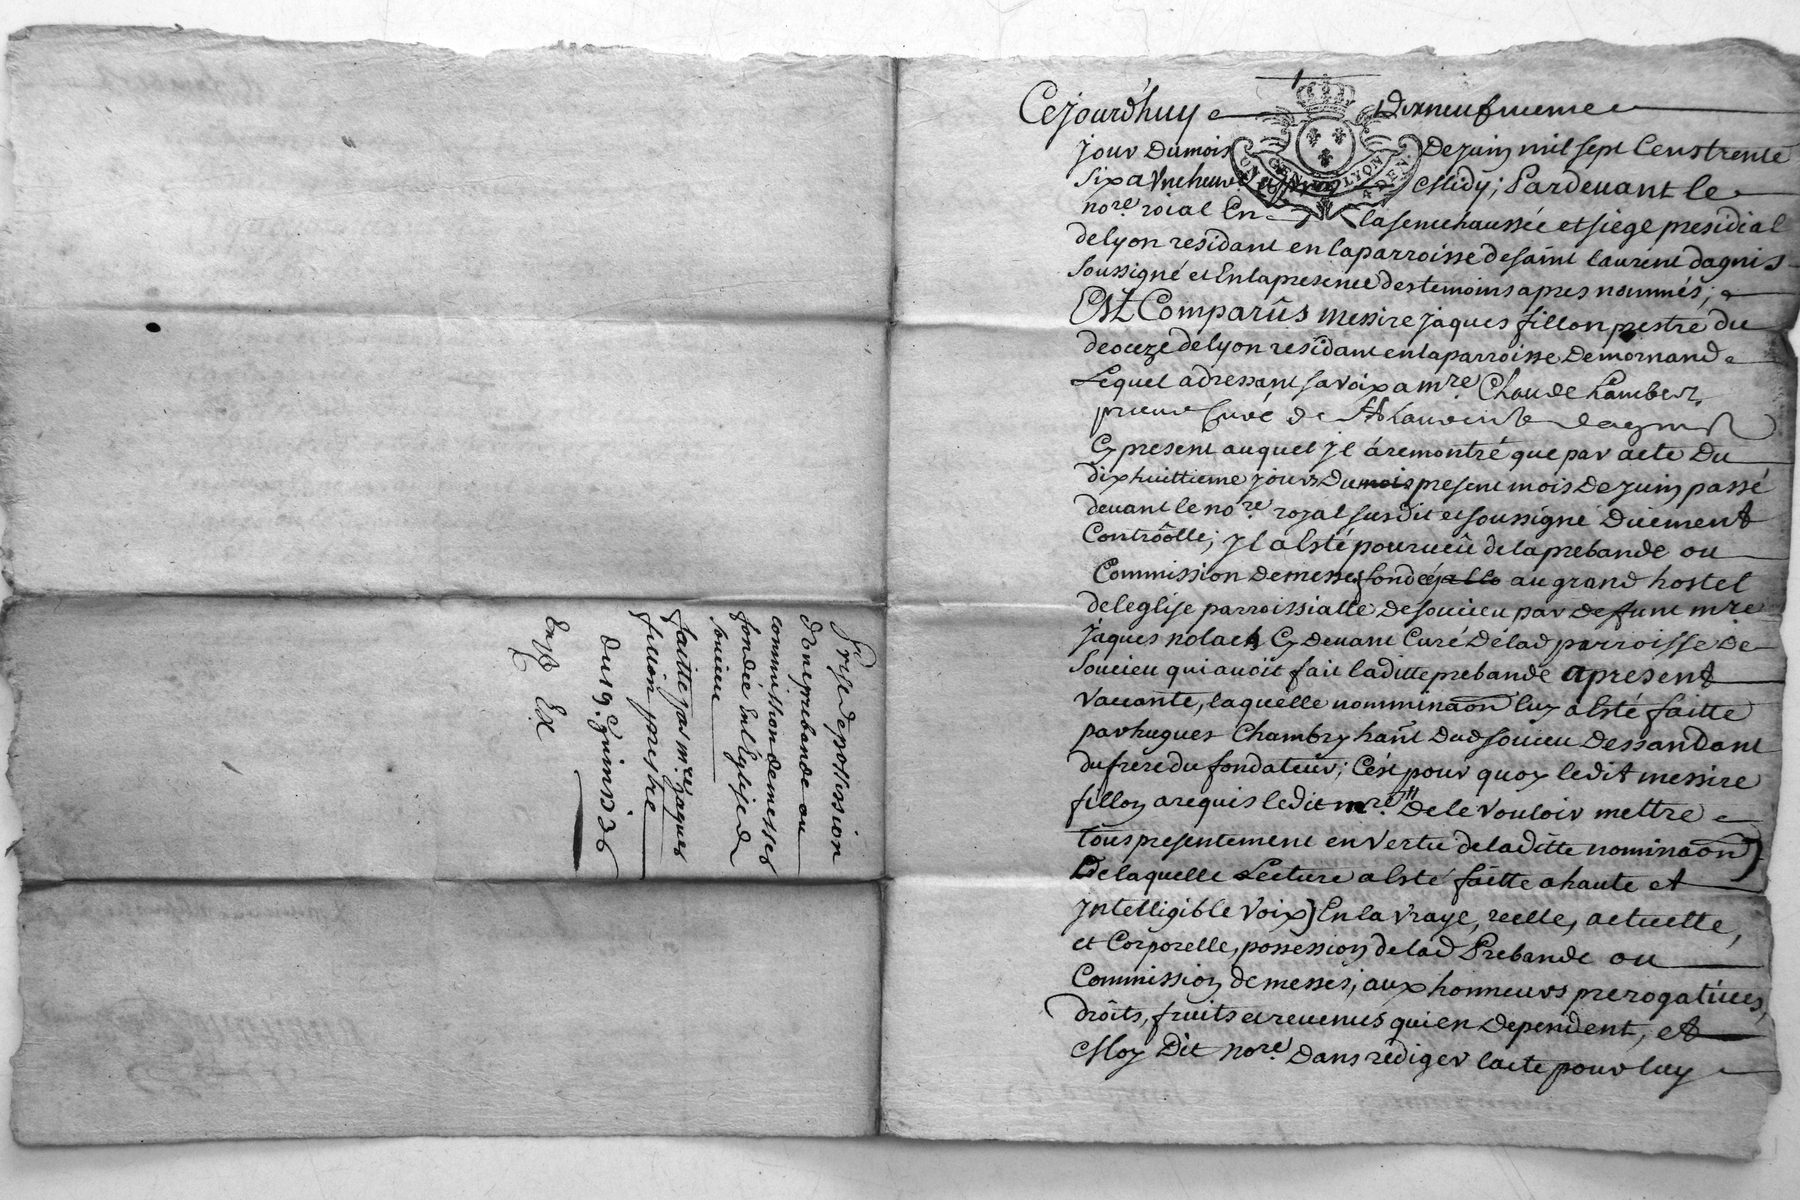 Prise de possession
d'une prebande ou
commission de messes
fondée En l'Eglise de
soucieu
faitte par mre Jaques
fillion prestre
du 19e Juin 1736
Exp Ex
Cejourd'huy dixneufvieme
jour du mois de juin mil sept Cens trente
six a Une heure apres Midy; Pardevant le
nore roial En la senechaussée et siege presidial
de lyon residant en la parroisse de saint laurent dagnis
soussigné et En la presence des temoins apres nommés;
Est Comparûs messire jaques fillon prestre du
dioceze de lyon residant en la parroisse de mornand
Lequel adressant sa voix a mre Claude Lambert
prieur Curé de St Laurent dagnis
Cy present auquel jl a remontré que par acte du
dix huittieme jour du mois present mois de juin passé
devant le nore royal susdit et soussigné Duëment
Contrôolle; jl a Esté pourveû de la prebande ou
Commission de messes fondée au grand hostel
de leglise parroissialle de soucieu par deffunt mre
jaques nolach Cy devant Curé de lad parroisse de
soucieu qui avoit fait laditte prebande apresent
vaccante, laquelle nomminaôn luy a Esté faitte
par hugues Chambry hant dud soucieu dessandant
du frere du fondateur; C'ést pour quoy ledit messire
fillon a requis ledit mre De le vouloir mettre
tous presentement en vertu de laditte nominaôn
De laquelle Lecture a Esté faitte a haute et
jntelligible voix) En la vraye, reelle, actuelle,
et Corporelle, possession de lad Prebande ou
Commission de messes, aux honneurs prerogatives,
droits, fruits et revenus qui en dependent, et
Moy Dit nore Dans rediger lacte pour luy
GEN DE LYON